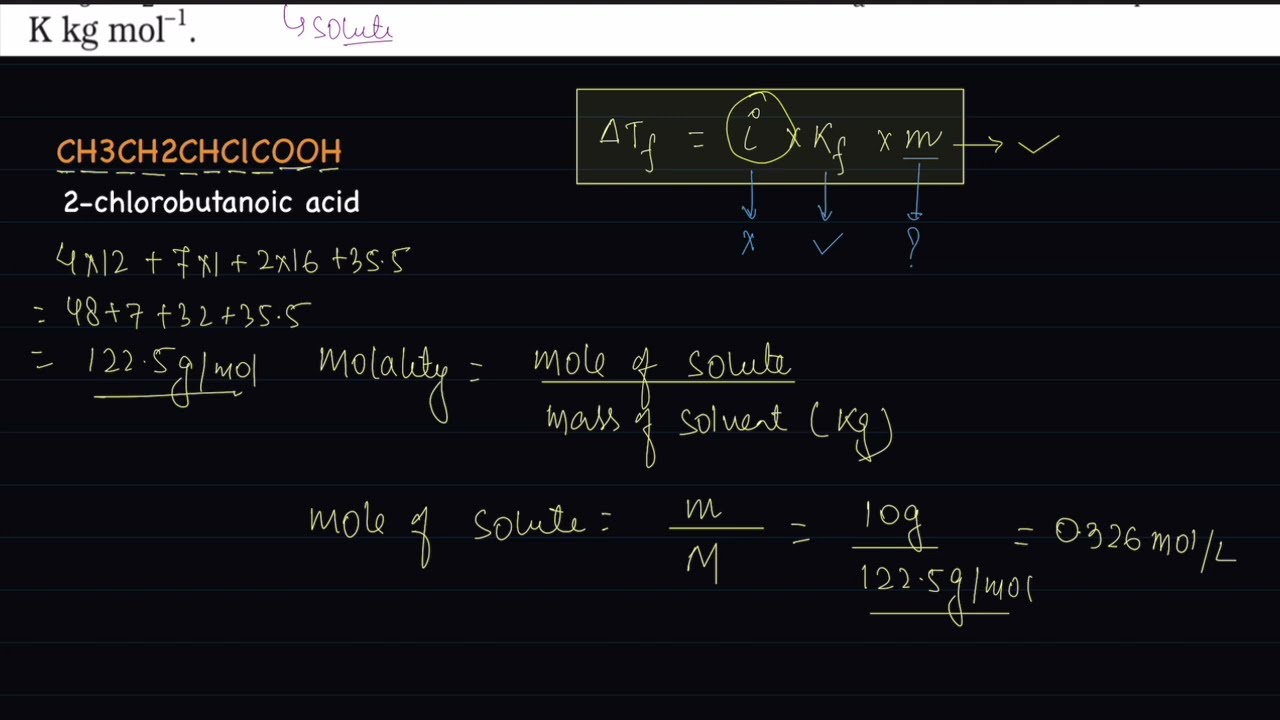 K kg mol⁻¹. ↳ solute
CH3CH2CHClCOOH
2-chlorobutanoic acid
ΔTf = i × Kf × m → ✓
x ✓ ?
4×12 + 7×1 + 2×16 + 35.5
= 48+7+32+35.5
= 122.5g/mol
Molality = mole of solute / mass of solvent (Kg)
Mole of solute = m / M = 10g / 122.5g/mol = 0.326 mol/L